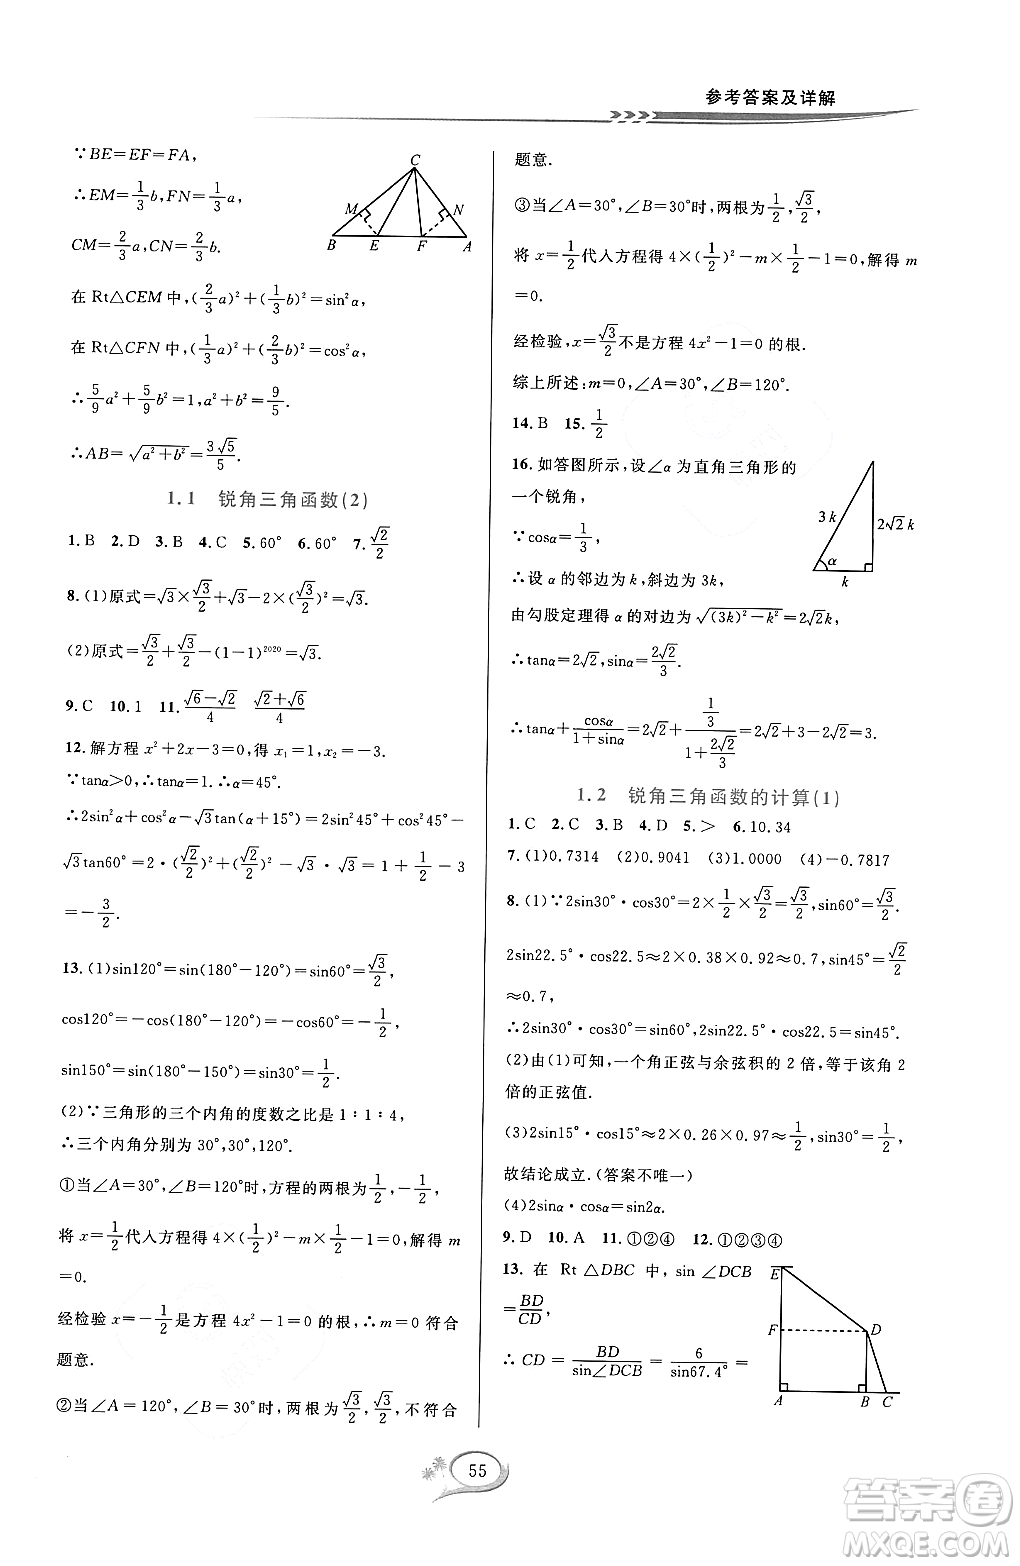 参考答案及详解
∵BE=EF=FA,
∴EM=1/3 b,FN=1/3 a,
CM=2/3 a,CN=2/3 b.
在 Rt△CEM 中,(2/3 a)²+(1/3 b)²=sin²α,
在 Rt△CFN 中,(1/3 a)²+(2/3 b)²=cos²α,
∴5/9 a²+5/9 b²=1,a²+b²=9/5.
∴AB=√(a²+b²)=3√5/5.
C
M
N
B E F A
1.1 锐角三角函数(2)
1.B 2.D 3.B 4.C 5.60° 6.60° 7.√2/2
8.(1)原式=√3×√3/2+√3-2×(√3/2)²=√3.
(2)原式=√3/2+√3/2-(1-1)²⁰²⁰=√3.
9.C 10.1 11.(√6-√2)/4 (√2+√6)/4
12.解方程 x²+2x-3=0,得 x₁=1,x₂=-3.
∵tanα>0,∴tanα=1.∴α=45°.
∴2sin²α+cos²α-√3tan(α+15°)=2sin²45°+cos²45°-
√3tan60°=2·(√2/2)²+(√2/2)²-√3·√3=1+1/2-3
=-3/2.
13.(1)sin120°=sin(180°-120°)=sin60°=√3/2,
cos120°=-cos(180°-120°)=-cos60°=-1/2,
sin150°=sin(180°-150°)=sin30°=1/2.
(2)∵三角形的三个内角的度数之比是 1∶1∶4,
∴三个内角分别为 30°,30°,120°.
①当∠A=30°,∠B=120°时,方程的两根为1/2,-1/2,
将 x=1/2代入方程得 4×(1/2)²-m×1/2-1=0,解得 m
=0.
经检验 x=-1/2是方程 4x²-1=0 的根,∴m=0 符合
题意.
②当∠A=120°,∠B=30°时,两根为√3/2,√3/2,不符合
题意.
③当∠A=30°,∠B=30°时,两根为1/2,√3/2,
将 x=1/2代入方程得 4×(1/2)²-m×1/2-1=0,解得 m
=0.
经检验,x=√3/2不是方程 4x²-1=0 的根.
综上所述:m=0,∠A=30°,∠B=120°.
14.B 15.1/2
16.如答图所示,设∠α 为直角三角形的
一个锐角,
∵cosα=1/3,
∴设 α 的邻边为 k,斜边为 3k,
由勾股定理得 α 的对边为√((3k)²-k²)=2√2k,
∴tanα=2√2,sinα=2√2/3.
∴tanα+cosα/(1+sinα)=2√2+(1/3)/(1+2√2/3)=2√2+3-2√2=3.
3k
2√2k
α
k
1.2 锐角三角函数的计算(1)
1.C 2.C 3.B 4.D 5.> 6.10.34
7.(1)0.7314 (2)0.9041 (3)1.0000 (4)-0.7817
8.(1)∵2sin30°·cos30°=2×1/2×√3/2=√3/2,sin60°=√3/2.
2sin22.5°·cos22.5°≈2×0.38×0.92≈0.7,sin45°=√2/2
≈0.7,
∴2sin30°·cos30°=sin60°,2sin22.5°·cos22.5=sin45°.
(2)由(1)可知,一个角正弦与余弦积的 2 倍,等于该角 2
倍的正弦值.
(3)2sin15°·cos15°≈2×0.26×0.97≈1/2,sin30°=1/2,
故结论成立.(答案不唯一)
(4)2sinα·cosα=sin2α.
9.D 10.A 11.①②④ 12.①②③④
13.在 Rt △DBC 中,sin ∠DCB
=BD/CD,
∴ CD = BD/sin∠DCB = 6/sin67.4° =
E
F D
A B C
55
答案圈
MXQE.COM